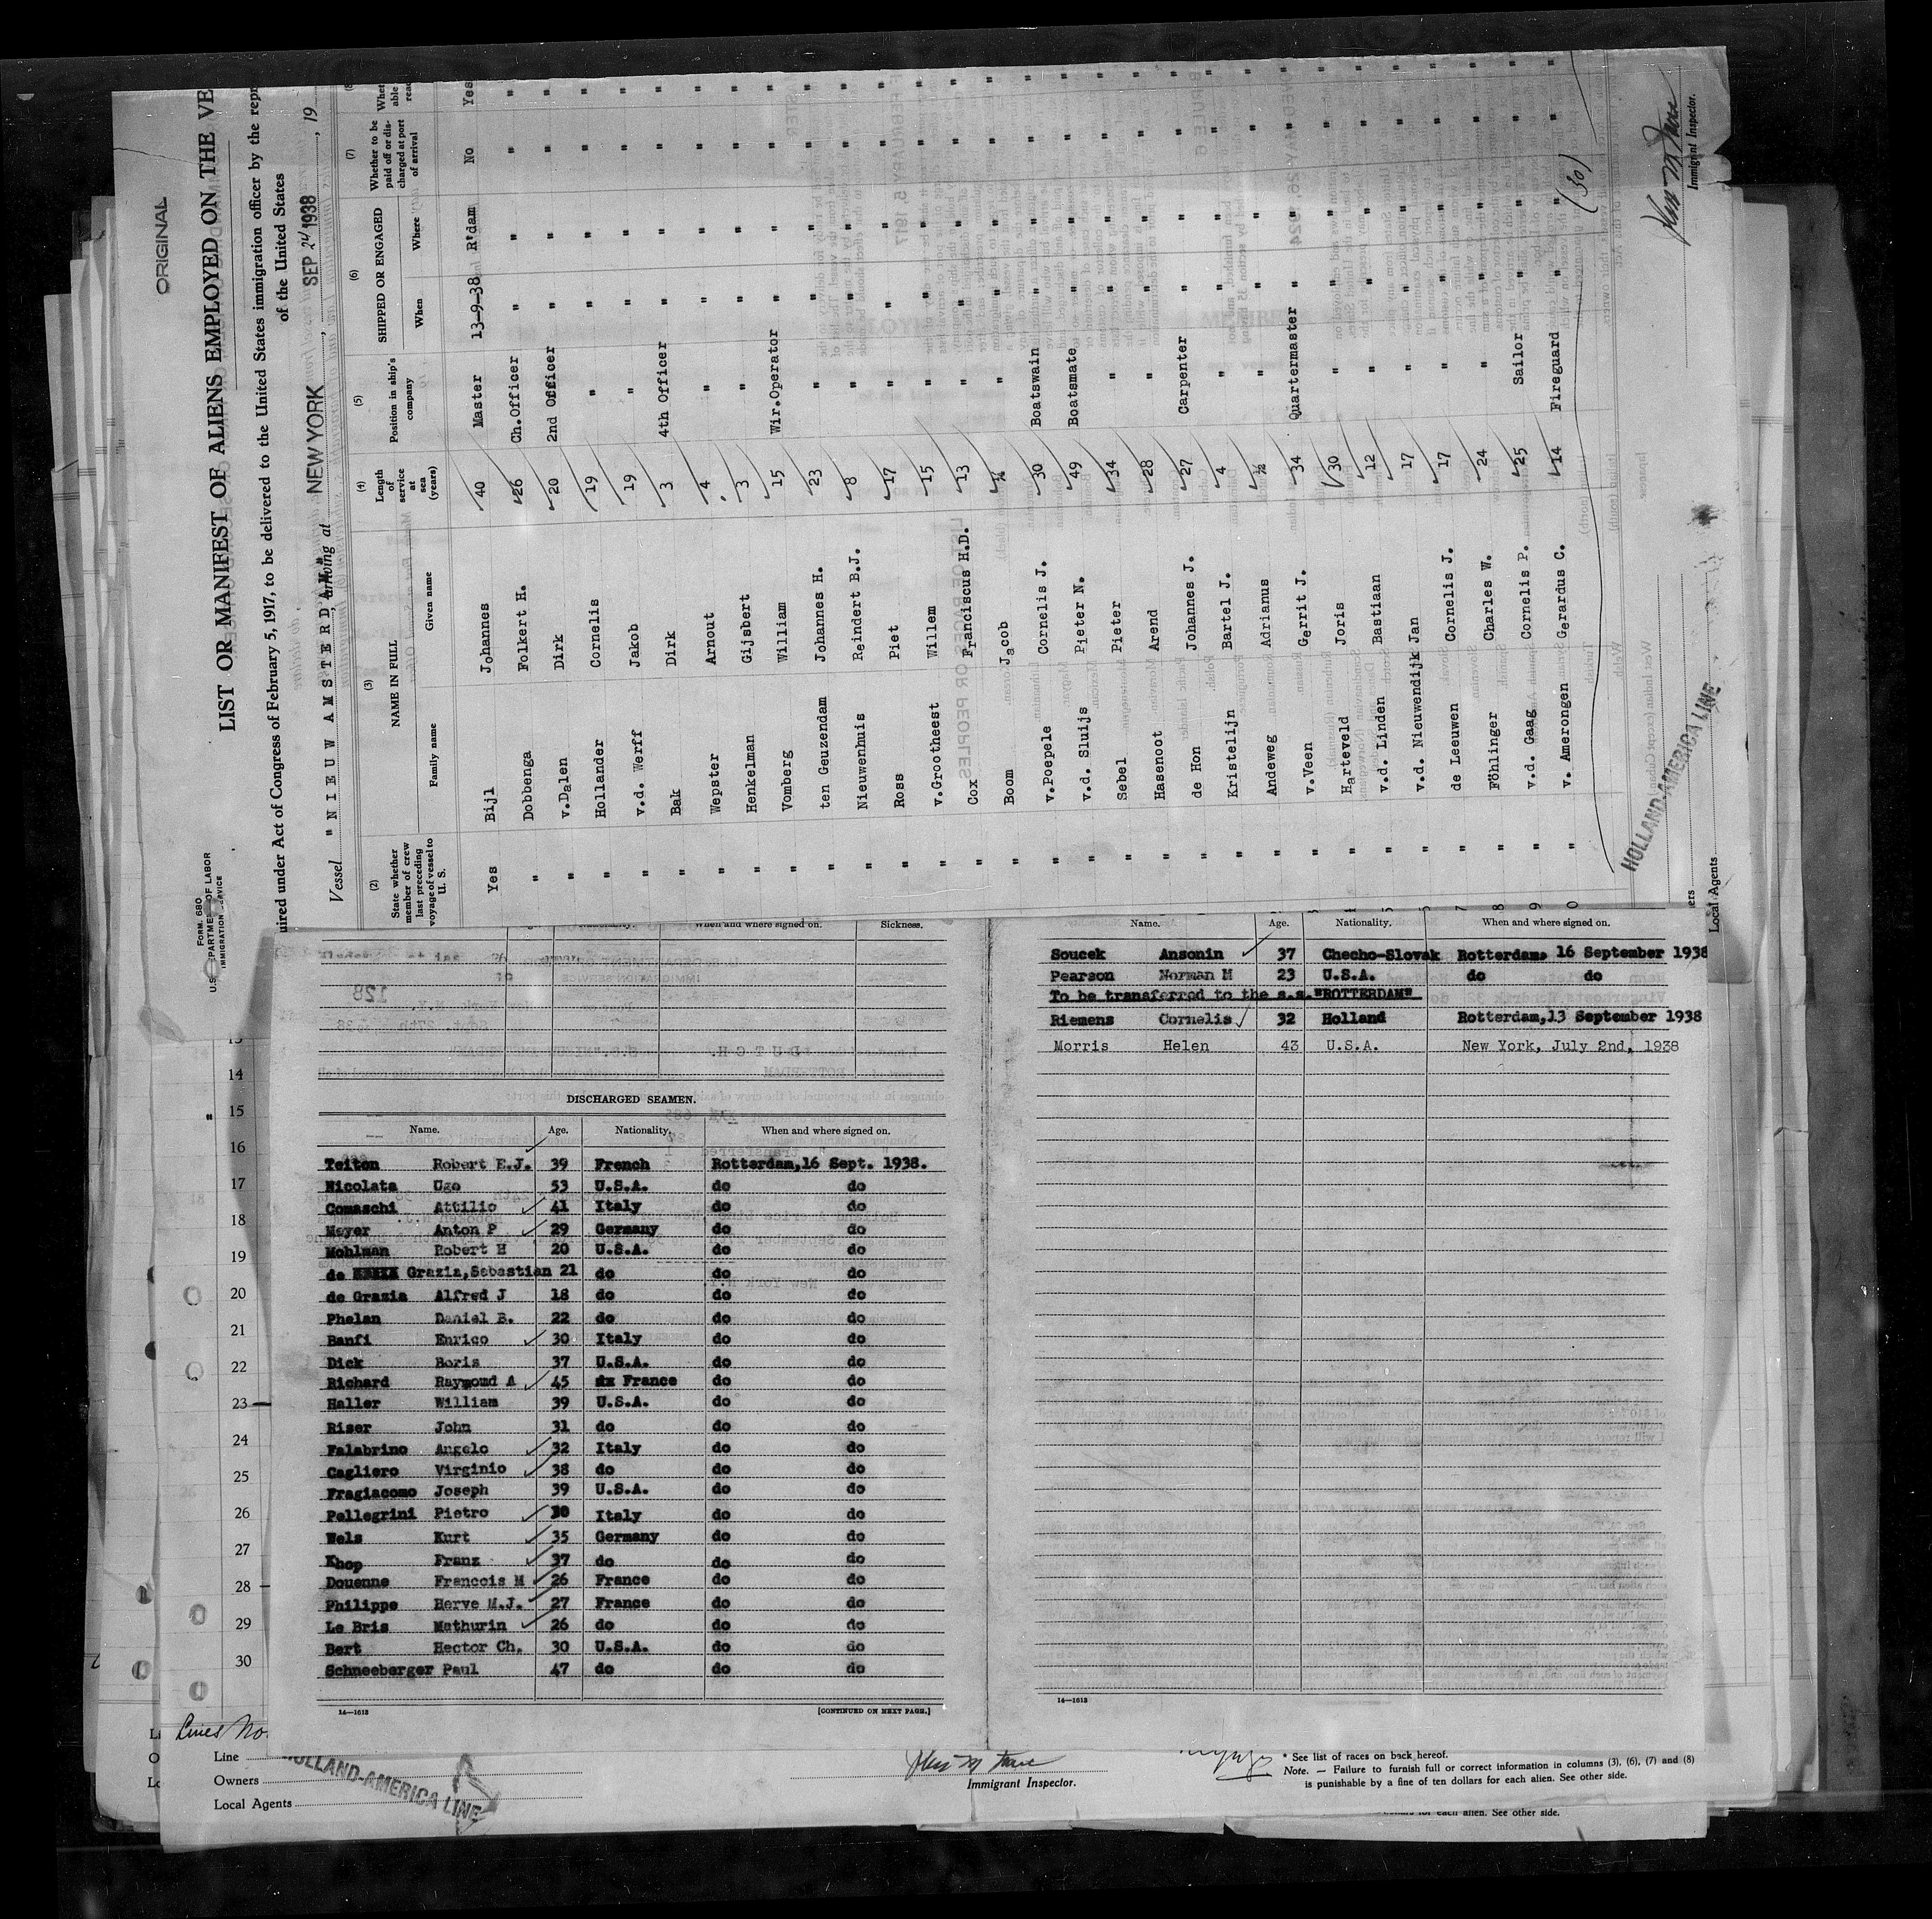 ORIGINAL
FORM 680
U.S. DEPARTMENT OF LABOR
IMMIGRATION SERVICE
LIST OR MANIFEST OF ALIENS EMPLOYED ON THE VE
uired under Act of Congress of February 5, 1917, to be delivered to the United States immigration officer by the repr
of the United States
Vessel "NIEUW AMSTERDAM", arriving at NEW YORK, SEP 24 1938, 19
(2) State whether member of crew last preceding voyage of vessel to U. S.
(3) NAME IN FULL Family name Given name
(4) Length of service at sea (years)
(5) Position in ship's company
(6) SHIPPED OR ENGAGED When Where
(7) Whether to be paid off or discharged at port of arrival
Yes Bijl Johannes 40 Master 13-9-38 R'dam No Yes
" Dobbenga Folkert H. 26 Ch.Officer " " " "
" v.Dalen Dirk 20 2nd Officer " " " "
" Hollander Cornelis 19 " " " " "
" v.d. Werff Jakob 19 " " " " "
" Bak Dirk 3 4th Officer " " " "
" Wepster Arnout 4 " " " " "
" Henkelman Gijsbert 3 " " " " "
" Vomberg William 15 Wir.Operator " " " "
" ten Geuzendam Johannes H. 23 " " " " "
" Nieuwenhuis Reindert B.J. 8 " " " " "
" Ross Piet 17 " " " " "
" v.Grootheest Willem 15 " " " " "
" Cox Franciscus H.D. 13 " " " " "
" Boom Jacob " " " " "
" v.Poepele Cornelis J. 30 Boatswain " " " "
" v.d. Sluijs Pieter N. 49 Boatsmate " " " "
" Sebel Pieter 34 " " " " "
" Hasenoot Arend 28 " " " " "
" de Hon Johannes J. 27 Carpenter " " " "
" Kristelijn Bartel J. 4 " " " " "
" Andeweg Adrianus ½ " " " " "
" v.Veen Gerrit J. 34 Quartermaster " " " "
" Harteveld Joris 30 " " " " "
" v.d. Linden Bastiaan 12 " " " " "
" v.d. Nieuwendijk Jan 17 " " " " "
" de Leeuwen Cornelis J. 17 " " " " "
" Föhlinger Charles W. 24 " " " " "
" v.d. Gaag Cornelis P. 25 Sailor " " " "
" v. Amerongen Gerardus C. 14 Fireguard " " " "
(30)
HOLLAND-AMERICA LINE
Local Agents
Immigrant Inspector.
When and where signed on. Sickness.
DISCHARGED SEAMEN.
Name. Age. Nationality. When and where signed on.
Teiton Robert E.J. 39 French Rotterdam,16 Sept. 1938.
Nicolata Ugo 53 U.S.A. do do
Comaschi Attilio 41 Italy do do
Meyer Anton P 29 Germany do do
Mohlman Robert H 20 U.S.A. do do
de Grazia,Sebastian 21 do do do
de Grazia Alfred J 18 do do do
Phelan Daniel B. 22 do do do
Banfi Enrico 30 Italy do do
Dick Boris 37 U.S.A. do do
Richard Raymond A 45 France do do
Haller William 39 U.S.A. do do
Riser John 31 do do do
Falabrino Angelo 32 Italy do do
Cagliero Virginio 38 do do do
Fragiacomo Joseph 39 U.S.A. do do
Pellegrini Pietro 30 Italy do do
Wels Kurt 35 Germany do do
Khop Franz 37 do do do
Douenne Francois M 26 France do do
Philippe Herve M.J. 27 France do do
Le Bris Mathurin 26 do do do
Bert Hector Ch. 30 U.S.A. do do
Schneeberger Paul 47 do do do
14—1613 [CONTINUED ON NEXT PAGE.]
Name. Age. Nationality. When and where signed on.
Soucek Ansonin 37 Checho-Slovak Rotterdam, 16 September 1938
Pearson Norman M 23 U.S.A. do do
To be transferred to the s.s."ROTTERDAM"
Riemens Cornelis 32 Holland Rotterdam,13 September 1938
Morris Helen 43 U.S.A. New York, July 2nd, 1938
14—1613
14
15
16
17
18
19
20
21
22
23
24
25
26
27
28
29
30
Lines No.
Line
Owners
Local Agents
HOLLAND-AMERICA LINE
Immigrant Inspector.
* See list of races on back hereof.
Note. — Failure to furnish full or correct information in columns (3), (6), (7) and (8)
is punishable by a fine of ten dollars for each alien. See other side.
for each alien. See other side.